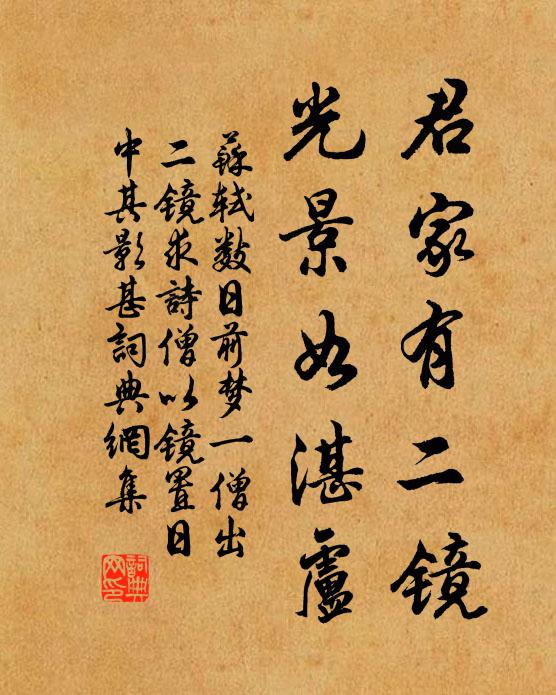 君家有二镜
光景如湛盧
蘇轼数日前梦一僧出
二镜求詩僧以镜置日
中其影甚詞典網集
詞典
网印